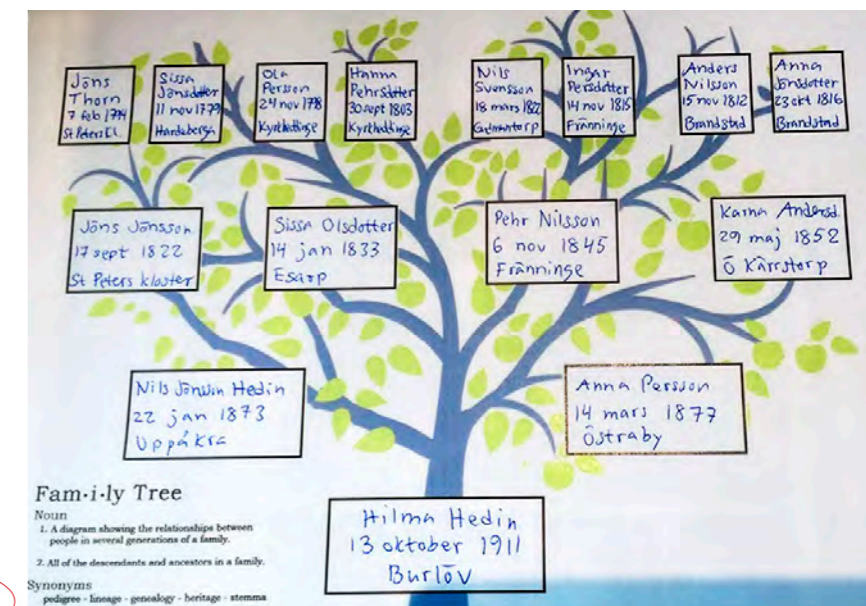 Jöns
Thorn
7 feb 1774
St Peters Kl.
Sissa
Jönsdotter
11 nov 1779
Hardeberga
Ola
Persson
24 nov 1798
Hanna
Pehrsdotter
30 sept 1803
Nils
Svensson
18 mars 1822
Ingar
Persdotter
14 nov 1815
Fränninge
Anders
Nilsson
15 nov 1812
Brandstad
Anna
Jönsdotter
23 okt 1816
Brandstad
Jöns Jönsson
17 sept 1822
St Peters kloster
Sissa Olsdotter
14 jan 1833
Esarp
Pehr Nilsson
6 nov 1845
Fränninge
Karna Andersd.
29 maj 1852
Ö Kärrstorp
Nils Jönsson Hedin
22 jan 1873
Uppåkra
Anna Persson
14 mars 1877
Östraby
Hilma Hedin
13 oktober 1911
Burlöv
Fam·i·ly Tree
Noun
1. A diagram showing the relationships between
people in several generations of a family.
2. All of the descendants and ancestors in a family.
Synonyms
pedigree - lineage - genealogy - heritage - stemma